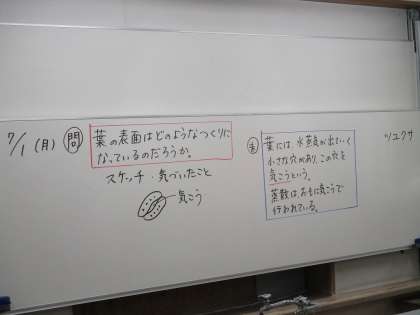 7/1 (月) 問 葉の表面はどのようなつくりに
なっているのだろうか。
スケッチ・気づいたこと
気こう
葉には、水蒸気が出ていく
小さな穴があり、この穴を
気こうという。
蒸散は、おもに気こうで
行われている。
ツユクサ